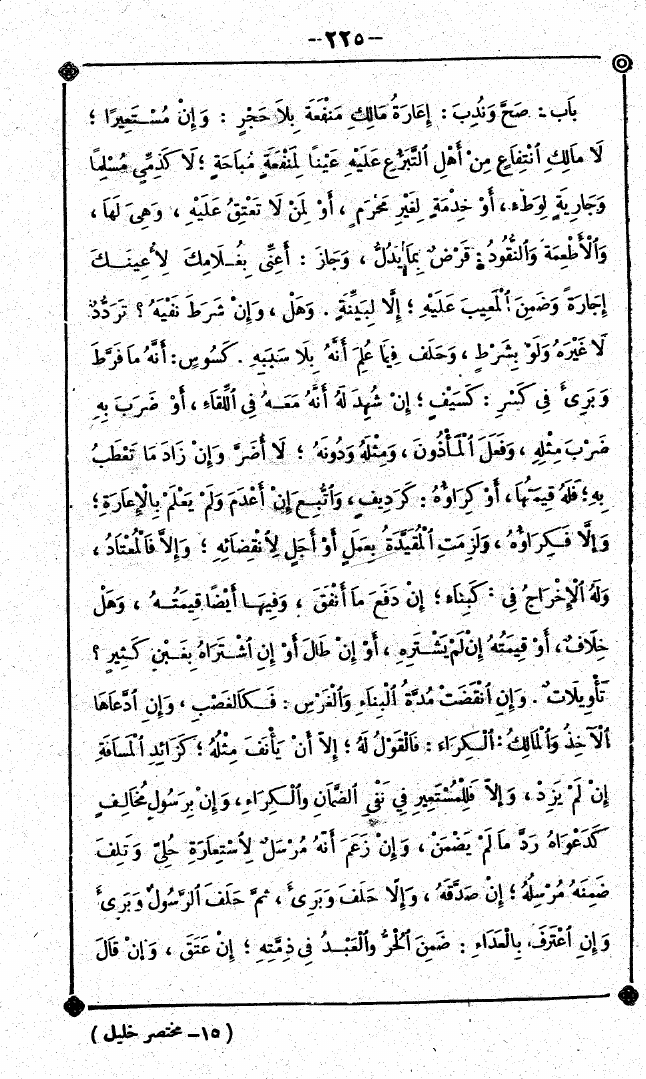 --٢٢٥--
بَاب: صَحَّ وَنُدِبَ: إِعَارَةُ مَالِكِ مَنْفَعَةٍ بِلاَ حَجْرٍ: وَإِنْ مُسْتَعِيرًا؛
لَا مَالِكِ انْتِفَاعٍ مِنْ أَهْلِ التَّبَرُّعِ عَلَيْهِ عَيْنًا لِمَنْفَعَةٍ مُبَاحَةٍ؛ لَا كَذِمِّيٍ مُسْلِمًا
وَجَارِيَةٍ لِوَطْءٍ، أَوْ خِدْمَةٍ لِغَيْرِ مَحْرَمٍ، أَوْ لِمَنْ لَا تَعْتِقُ عَلَيْهِ، وَهِيَ لَهَا،
وَالْأَطْعِمَةُ وَالنُّقُودُ: قَرْضٌ بِمَا يَدُلُّ، وَجَازَ: أَعِنِّى بِغُلَامِكَ لِأُعِينَكَ
إِجَارَةً وَضَمِنَ الْمَغِيبَ عَلَيْهِ؛ إِلَّا لِبَيِّنَةٍ. وَهَلْ، وَإِنْ شَرَطَ نَفْيَهُ؟ تَرَدُّدٌ
لَا غَيْرَهُ وَلَوْ بِشَرْطٍ، وَحَلَفَ فِيمَا عُلِمَ أَنَّهُ بِلَا سَبَبِهِ. كَسُوسٍ: أَنَّهُ مَا فَرَّطَ
وَبَرِئَ فِى كَسْرِ: كَسَيْفٍ؛ إِنْ شُهِدَ لَهُ أَنَّهُ مَعَهُ فِى اللِّقَاءِ، أَوْ ضَرَبَ بِهِ
ضَرْبَ مِثْلِهِ، وَفَعَلَ الْمَأْذُونَ، وَمِثْلَهُ وَدُونَهُ؛ لَا أَضَرَّ وَإِنْ زَادَ مَا تَعْطَبُ
بِهِ؛ فَلَهُ قِيمَتُهَا، أَوْ كِرَاؤُهُ: كَرَدِيفٍ، وَاتُّبِعَ إِنْ أَعْدَمَ وَلَمْ يَعْلَمْ بِالْإِعَارَةِ؛
وَإِلَّا فَكِرَاؤُهُ، وَلَزِمَتِ الْمُقَيَّدَةُ بِعَمَلٍ أَوْ أَجَلٍ لِانْقِضَائِهِ؛ وَإِلاَّ فَالْمُعْتَادُ،
وَلَهُ الْإِخْرَاجُ فِى: كَبِنَاءٍ؛ إِنْ دَفَعَ مَا أَنْفَقَ، وَفِيهَا أَيْضًا قِيمَتُهُ، وَهَلْ
خِلَافٌ، أَوْ قِيمَتُهُ إِنْ لَمْ يَشْتَرِهِ، أَوْ إِنْ طَالَ أَوْ إِنِ اشْتَرَاهُ بِغَبْنٍ كَثِيرٍ؟
تَأْوِيلَاتٌ. وَإِنِ انْقَضَتْ مُدَّةُ الْبِنَاءِ وَالْغَرْسِ: فَكَالْغَصْبِ، وَإِنِ ادَّعَاهَا
الْآخِذُ وَالْمَالِكُ: الْكِرَاءَ: فَالْقَوْلُ لَهُ؛ إِلاَّ أَنْ يَأْنَفَ مِثْلُهُ؛ كَزَائِدِ الْمَسَافَةِ
إِنْ لَمْ يَزِدْ، وَإِلاَّ فَلِلْمُسْتَعِيرِ فِي نَفْيِ الضَّمَانِ والْكِرَاءِ، وَإِنْ بِرَسُولٍ مُخَالِفٍ
كَدَعْوَاهُ رَدَّ مَا لَمْ يَضْمَنْ، وَإِنْ زَعَمَ أَنَّهُ مُرْسَلٌ لِاسْتِعَارَةِ حُلِيٍّ وَتَلِفَ
ضَمِنَهُ مُرْسِلُهُ؛ إِنْ صَدَّقَهُ، وَإِلَّا حَلَفَ وَبَرِئَ، ثمَّ حَلَفَ الرَّسُولُ وَبَرِئَ
وَإِنِ اعْتَرَفَ بِالْعَدَاءِ: ضَمِنَ الْحُرُّ والْعَبْدُ فِى ذِمَّتِهِ؛ إِنْ عَتَقَ، وَإِنْ قَالَ
(١٥ــ مختصر خليل)